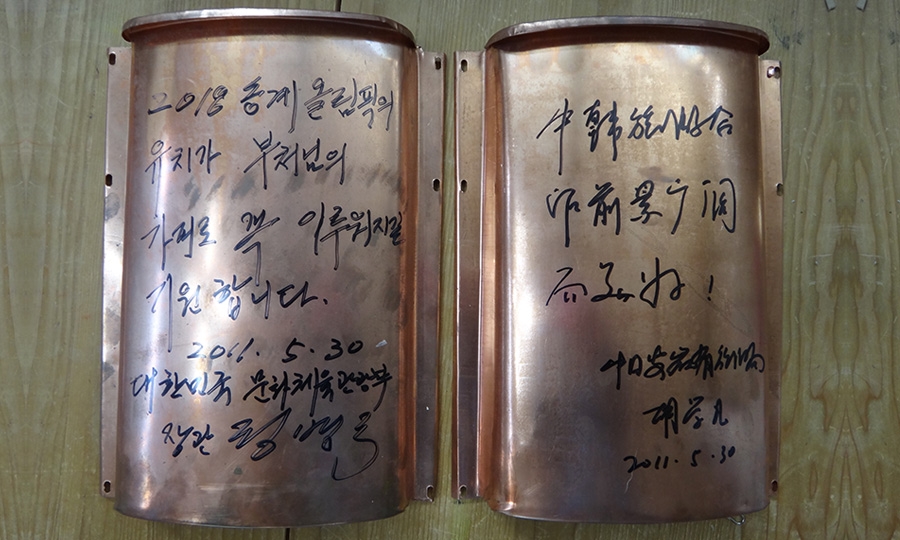 2018 동계 올림픽의
유치가 부처님의
가피로 꼭 이루워지길
기원합니다.
2011. 5. 30
대한민국 문화체육관광부
장관 정병국
中韩旅游合
作前景广阔
而美好！
中国安徽省旅游局
胡学凡
2011. 5. 30